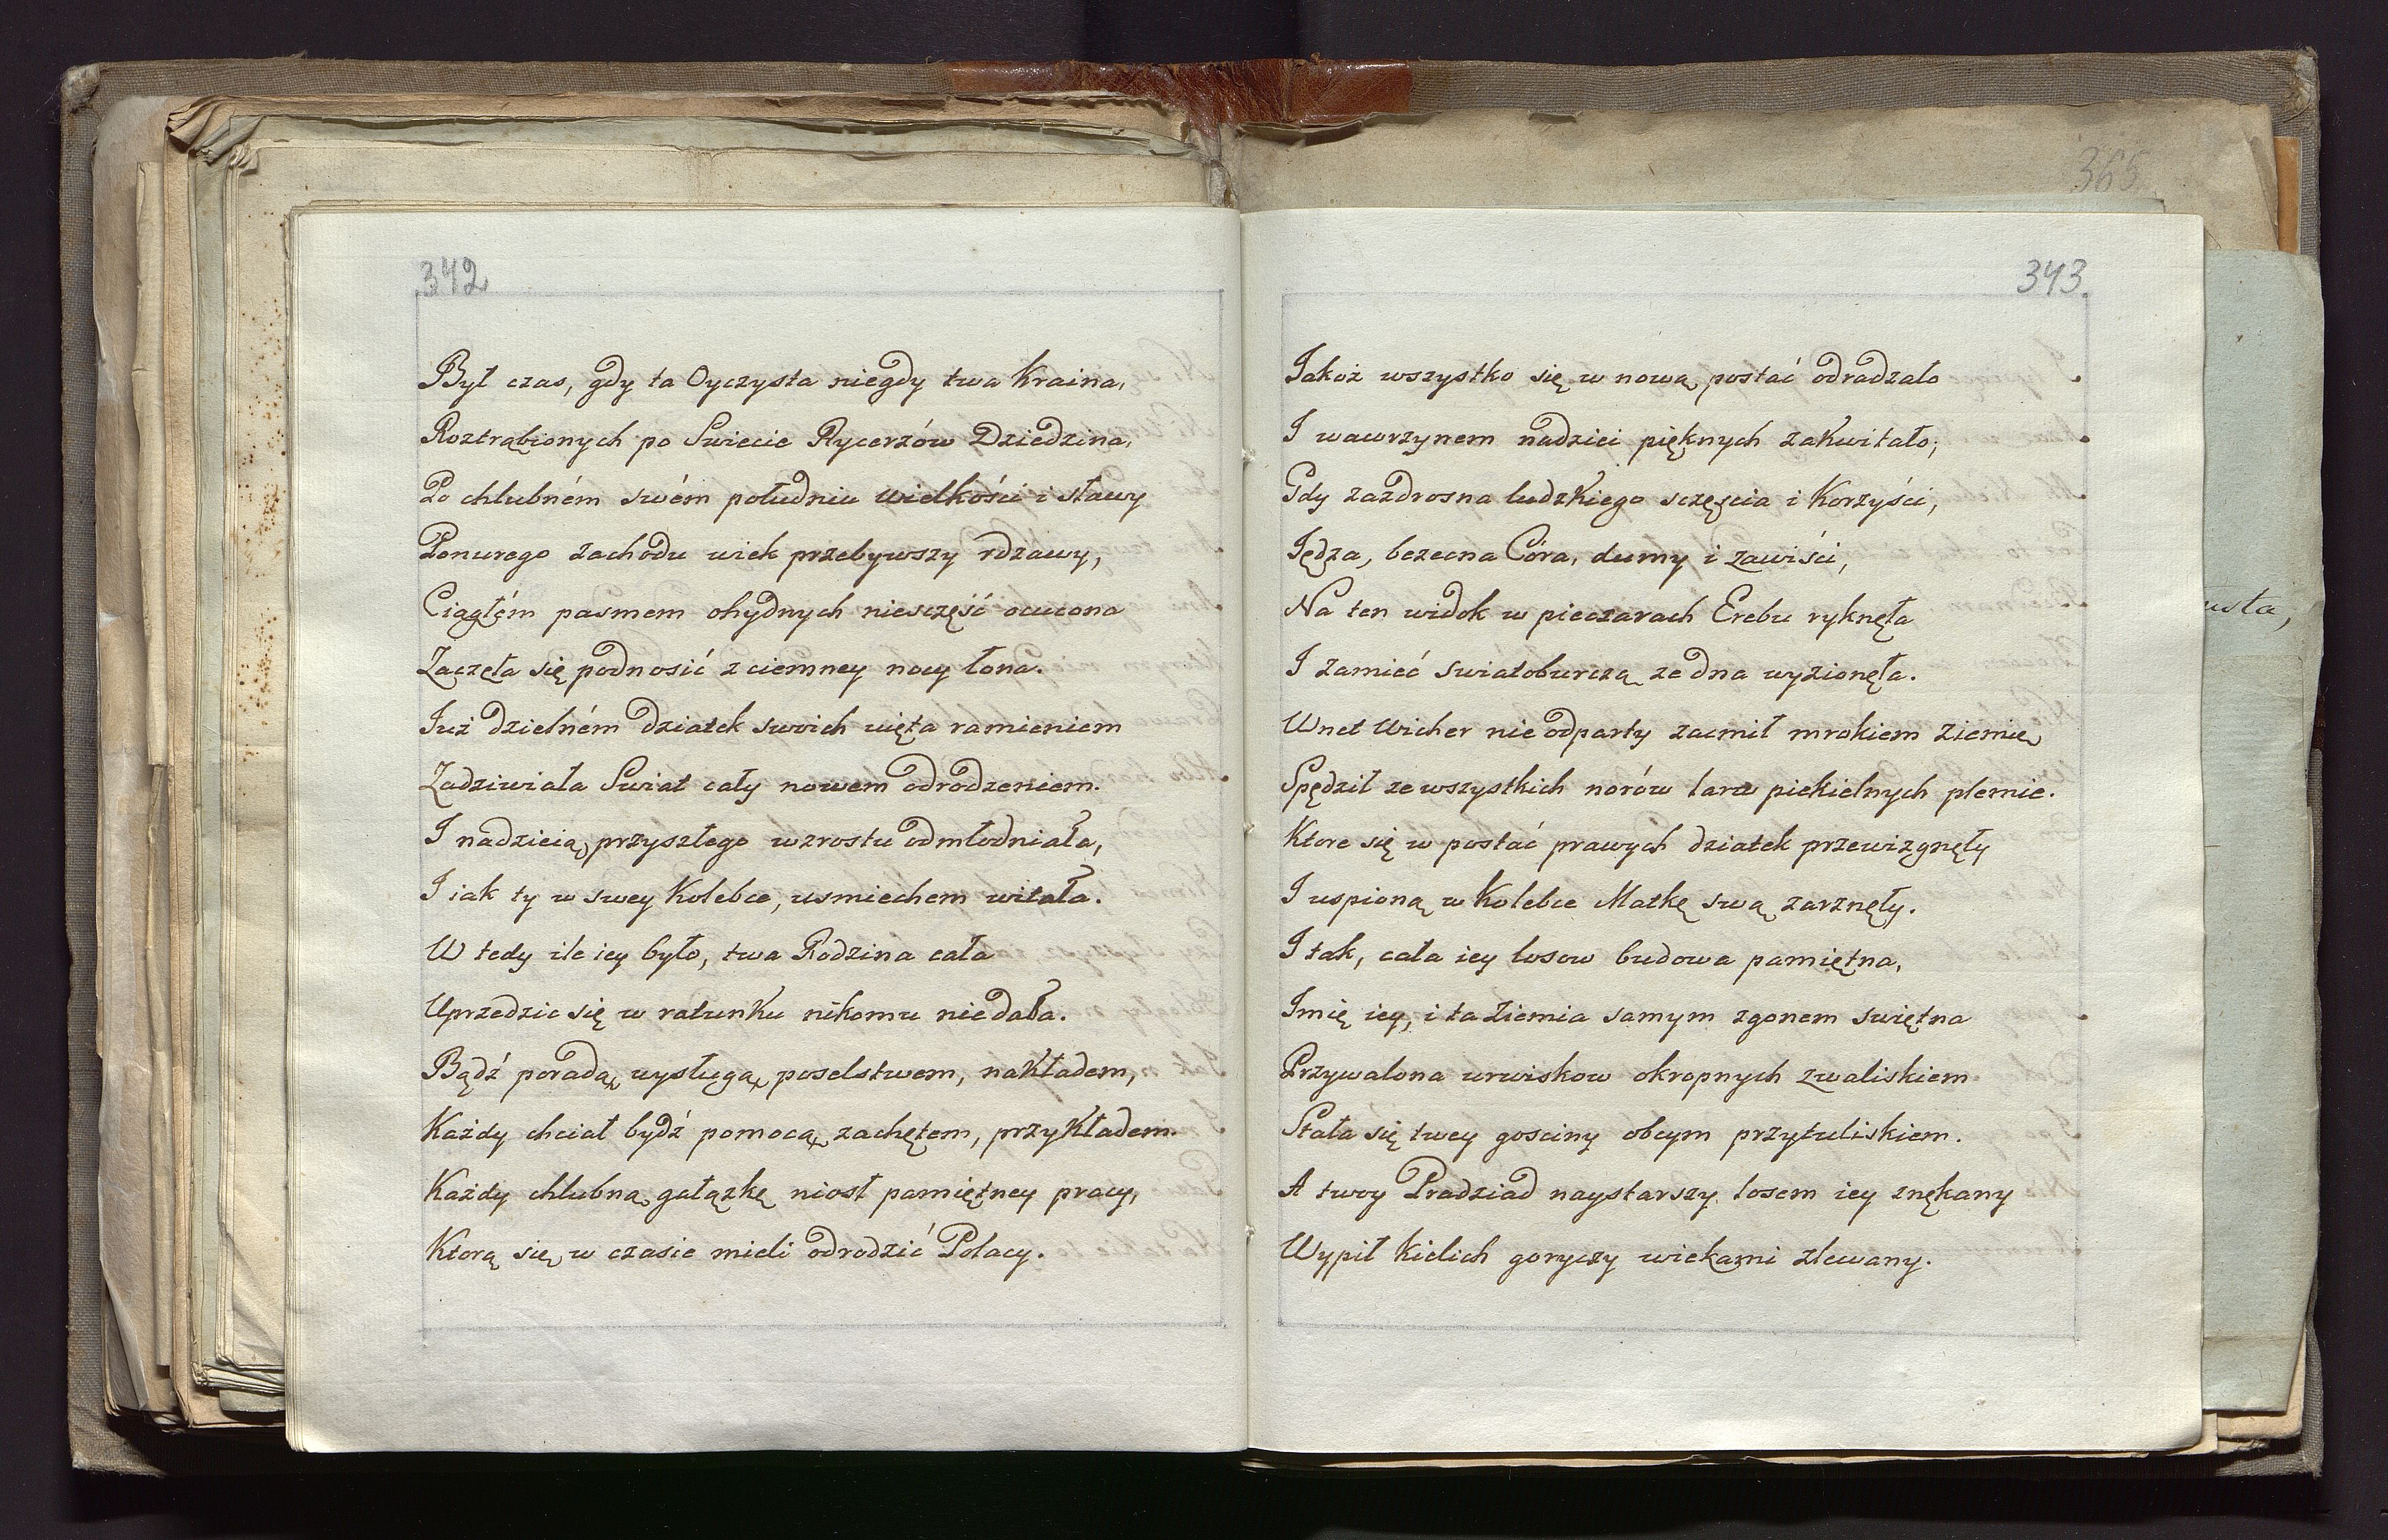 342
Był czas, gdy ta Oyczysta niegdy twa Kraina,
Roztrąbionych po Swiecie Rycerzów Dziedzina,
Po chlubném swém południu wielkości i sławy
Ponurego zachodu wiek przebywszy rdzawy,
Ciągłém pasmem ohydnych niesczęść ocucona
Zaczęła się podnosić z ciemney nocy łona.
Już dzielném dziatek swoich uięta ramieniem
Zadziwiała Swiat cały nowem odrodzeniem.
I nadzieią przyszłego wzrostu odmłodniała,
I iak ty w swey Kolebce, usmiechem witała.
W tedy ile iey było, twa Rodzina cała
Uprzedzic się w ratunku nikomu niedała.
Bądź poradą, wysługą, poselstwem, nakładem,
Każdy chciał bydź pomocą, zachętem, przykładem.
Każdy chlubną gałązkę niosł pamiętney pracy,
Ktorą się w czasie mieli odrodzić Polacy.
365
343
Jakoż wszystko się w nową postać odradzało
I wawrzynem nadziei pięknych zakwitało;
Gdy zazdrosna ludzkiego sczęścia i Korzyści,
Jędza, bezecna Córa, dumy i zawiści,
Na ten widok w pieczarach Erebu ryknęła
I zamieć swiatoburczą ze dna wyzionęła.
Wnet Wicher nie odparty zacmił mrokiem ziemię
Spędził ze wszystkich norów larw piekielnych plemie.
Ktore się w postać prawych dziatek przewizgnęły
I uspioną w Kolebce Matkę swą zarznęły.
I tak, cała iey losow budowa pamiętna,
Imię iey, i ta Ziemia samym zgonem swiętna
Przywalona urwiskow okropnych zwaliskiem
Stała się twey gosciny obcym przytuliskiem.
A twoy Pradziad naystarszy losem iey znękany
Wypił Kielich goryczy wiekami zlewany.
usta,